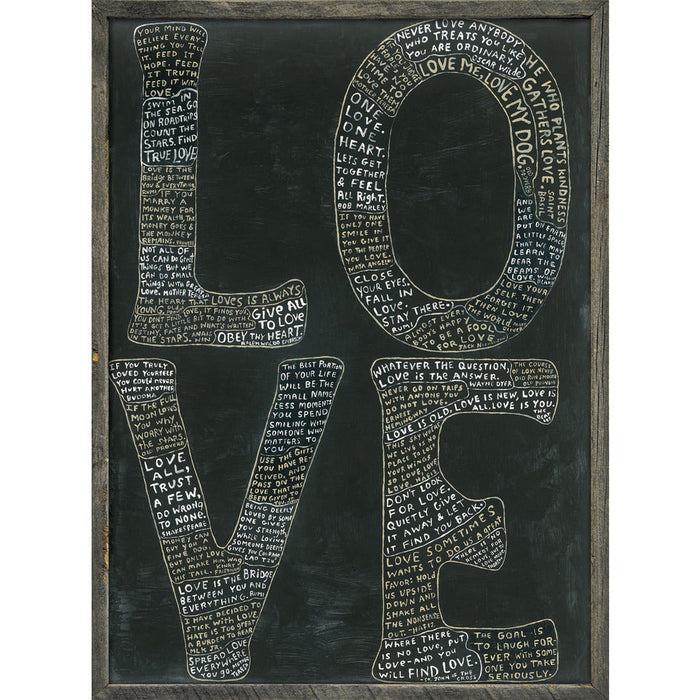 YOUR MIND WILL
BELIEVE EVERY-
THING YOU TELL
IT. FEED IT
HOPE. FEED
IT TRUTH
FEED IT WITH
LOVE.
SWIM IN
THE SEA. GO
ON ROADTRIPS
COUNT THE
STARS. FIND
TRUE LOVE.
LOVE IS THE
BRIDGE BETWEEN
YOU & EVERYTHING.
RUMI
IF YOU
MARRY A
MONKEY FOR
ITS WEALTH, THE
MONEY GOES &
THE MONKEY
REMAINS. PROVERB
NOT ALL OF
US CAN DO GREAT
THINGS BUT WE
CAN DO SMALL
THINGS WITH GREAT
LOVE. MOTHER TERESA
THE HEART THAT LOVES IS ALWAYS
YOUNG.
YOU DON'T FIND LOVE, IT FINDS YOU.
IT'S GOT A LITTLE BIT TO DO WITH
DESTINY, FATE AND WHAT'S WRITTEN
IN THE STARS. ANAIS NIN
GIVE ALL
TO LOVE
OBEY THY HEART.
RALPH WALDO EMERSON
NEVER LOVE ANYBODY
WHO TREATS YOU LIKE
YOU ARE ORDINARY.
OSCAR WILDE
HE WHO PLANTS KINDNESS
GATHERS LOVE. SAINT
BASIL
LOVE ME, LOVE MY DOG.
IF YOU JUDGE
PEOPLE YOU
HAVE NO
TIME TO
LOVE THEM
MOTHER TERESA
ONE
LOVE.
ONE
HEART.
LETS GET
TOGETHER
& FEEL
ALL RIGHT.
BOB MARLEY
IF YOU HAVE
ONLY ONE
SMILE IN
YOU GIVE IT
TO THE PEOPLE
YOU LOVE.
MAYA ANGELOU
CLOSE
YOUR EYES.
FALL IN
LOVE,
STAY THERE.
RUMI
AND
WE
ARE
PUT ON EARTH
A LITTLE SPACE
THAT WE MAY
LEARN TO
BEAR THE
BEAMS OF
LOVE.
FOR LOVE
WHATEVER THE QUESTION,
LOVE IS THE ANSWER.
WAYNE DYER
THE COURSE
OF LOVE NEVER
DID RUN SMOOTH
OLD PROVERB
NEVER GO ON TRIPS
WITH ANYONE YOU
DO NOT LOVE.
ERNEST
HEMINGWAY
LOVE IS OLD, LOVE IS NEW, LOVE IS
ALL, LOVE IS YOU.
THE
DON'T LOOK
FOR LOVE.
QUIETLY GIVE
IT AWAY & LET
IT FIND YOU BACK.
LOVE SOMETIMES
WANTS TO DO US A GREAT
FAVOR: HOLD
US UPSIDE
DOWN AND
SHAKE ALL
THE NONSENSE
OUT. -HAFIZ
WHERE THERE
IS NO LOVE, PUT
LOVE-AND YOU
WILL FIND LOVE.
ST. JOHN OF THE
CROSS
THE GOAL IS
TO LAUGH FOR-
EVER WITH SOME
ONE YOU TAKE
SERIOUSLY.
IF YOU TRULY
LOVED YOURSELF
YOU COULD NEVER
HURT ANOTHER
BUDDHA
IF THE FULL
MOON LOVES
YOU WHY
WORRY WITH
THE STARS.
OLD PROVERB
LOVE
ALL,
TRUST
A FEW,
DO WRONG
TO NONE.
SHAKESPEARE
MONEY CAN
BUY YOU A
FINE DOG,
BUT ONLY LOVE
CAN MAKE HIM WAG
HIS TAIL.
LOVE IS THE BRIDGE
BETWEEN YOU AND
EVERYTHING. RUMI
I HAVE DECIDED TO
STICK WITH LOVE
HATE IS TOO GREAT
A BURDEN TO BEAR
MLK JR.
SPREAD LOVE
EVERYWHERE
YOU GO. MOTHER
TERESA
THE BEST PORTION
OF YOUR LIFE
WILL BE THE
SMALL NAME-
LESS MOMENTS
YOU SPEND
SMILING WITH
SOMEONE WHO
MATTERS TO
YOU.
USE THE GIFTS
YOU HAVE RE-
CEIVED, AND
PASS ON THE
LOVE THAT HAS
BEEN GIVEN TO
YOU.
BEING DEEPLY
LOVED BY SOME
ONE GIVES
YOU STRENGTH
WHILE LOVING
SOMEONE DEEPLY
GIVES YOU COURAGE
LAO TZU